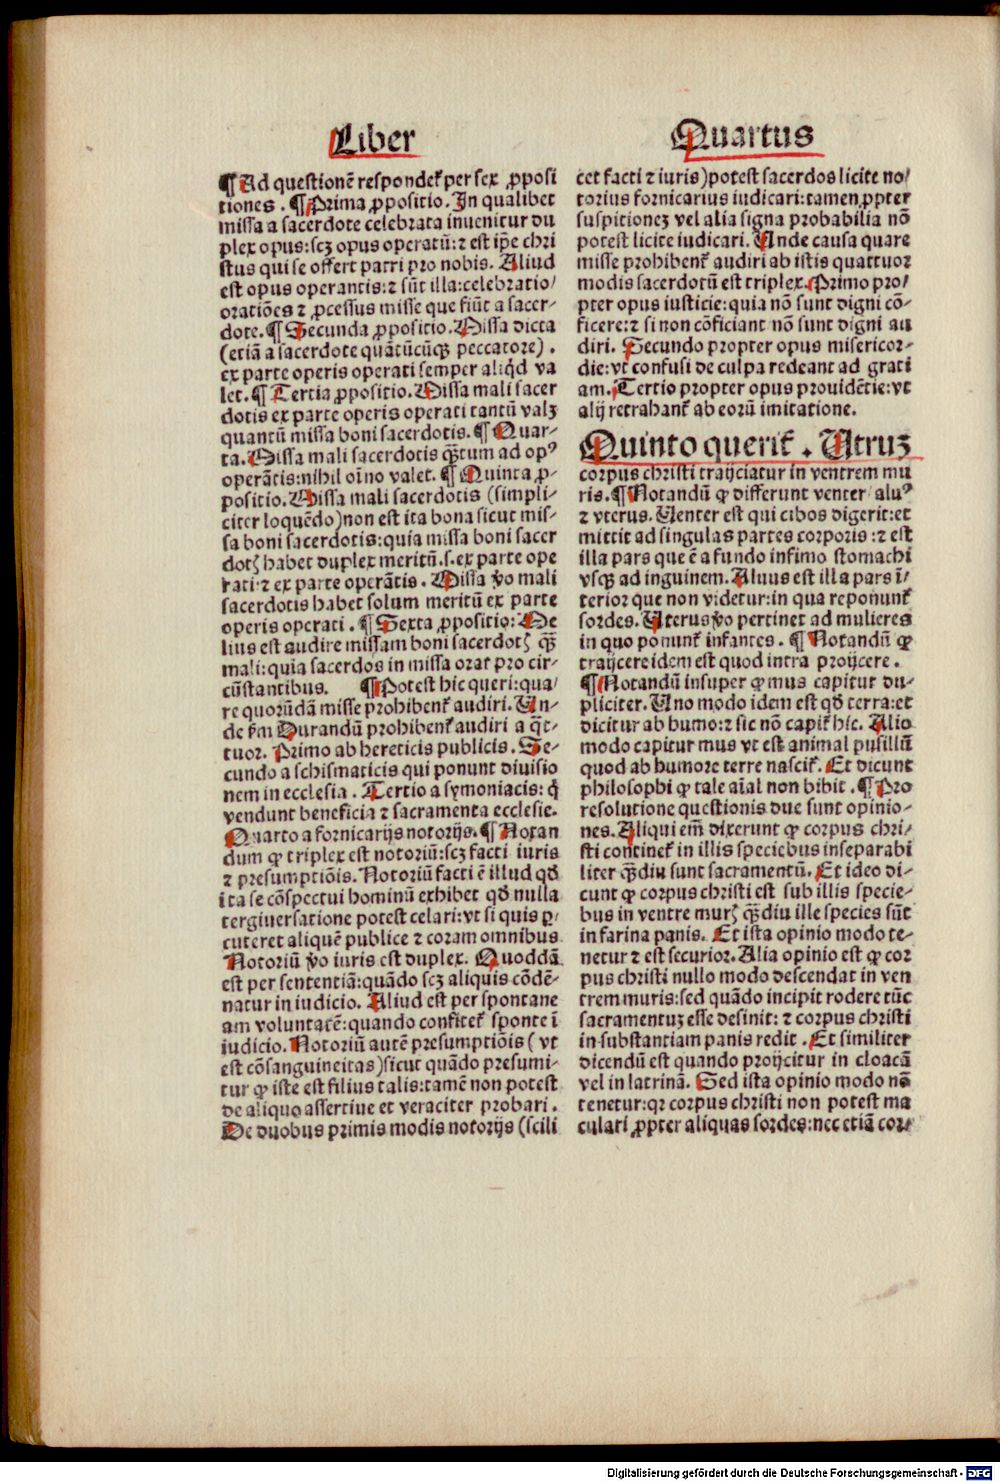 Liber
Quartus
¶ Ad questionē respondet᷑ per sex ꝓposi
tiones . ¶ Prima ꝓpositio. In qualibet
missa a sacerdote celebrata inuenitur du
plex opus:scꝫ opus operatū: ⁊ est ip̄e chri
stus qui se offert patri pro nobis. Aliud
est opus operantis: ⁊ sūt illa:celebratio/
oratiōes ⁊ ꝓcessus misse que fiūt a sacer-
dote. ¶ Secunda ꝓpositio. Missa dicta
(etiā a sacerdote quātūcūqꝫ peccatore) .
ex parte operis operati semper aliqd̓ va
let. ¶ Tertia ꝓpositio. Missa mali sacer
dotis ex parte operis operati tantū valꝫ
quantū missa boni sacerdotis. ¶ Quar-
ta. Missa mali sacerdotis qꝫ̄tum ad opꝰ
operātis:nihil oīno valet. ¶ Quinta ꝓ-
positio. Missa mali sacerdotis (simpli-
citer loquēdo) non est ita bona sicut mis-
sa boni sacerdotis:quia missa boni sacer
dotꝭ habet duplex meritū.s.ex parte ope
rati: ⁊ ex parte operātis . Missa v̓o mali
sacerdotis habet solum meritū ex parte
operis operati . ¶ Sexta ꝓpositio: Me
lius est audire missam boni sacerdotꝭ qꝫ̄
mali:quia sacerdos in missa orat pro cir-
cūstantibus. ¶ Potest hic queri:qua/
re quorūdā misse prohibent᷑ audiri. Un-
de s̓m Durandū prohibent᷑ audiri a q̄t-
tuor. Primo ab hereticis publicis . Se-
cundo a schismaticis qui ponunt diuisio
nem in ecclesia . Tertio a symoniacis: q̓
vendunt beneficia ⁊ sacramenta ecclesie.
Quarto a fornicarijs notorijs. ¶ Notan
dum ꝙ triplex est notoriū:scꝫ facti iuris
⁊ presumptiōis. Notoriū facti ē illud qd̓
ita se cōspectui hominū exhibet qd̓ nulla
tergiuersatione potest celari:vt si quis ꝑ-
cuteret aliquē publice ⁊ coram omnibus
Notoriū v̓o iuris est duplex. Quoddā
est per sententiā:quādo scꝫ aliquis cōdē-
natur in iudicio. Aliud est per spontane
am voluntatē:quando confitet᷑ sponte ī
iudicio. Notoriū autē presumptiōis (vt
est cōsanguineitas) sicut quādo presumi-
tur ꝙ iste est filius talis:tamē non potest
de aliquo assertiue et veraciter probari .
De duobus primis modis notorijs (scili
cet facti ⁊ iuris) potest sacerdos licite no/
torius fornicarius iudicari:tamen ꝓpter
suspitioneꝫ vel alia signa probabilia nō
potest licite iudicari. Unde causa quare
misse prohibent᷑ audiri ab istis quattuor
modis sacerdotū est triplex. Primo pro/
pter opus iusticie:quia nō sunt digni cō-
ficere: ⁊ si non cōficiant nō sunt digni au
diri. Secundo propter opus misericor-
die:vt confusi de culpa redeant ad grati
am. Tertio propter opus prouidētie:vt
alij retrahant᷑ ab eorū imitatione.
Quinto querit᷑ . Utruꝫ
corpus christi traijciatur in ventrem mu
ris. ¶ Notandū ꝙ differunt venter/ aluꝰ
⁊ vterus. Uenter est qui cibos digerit:et
mittit ad singulas partes corporis : ⁊ est
illa pars que ē a fundo infimo stomachi
vsqꝫ ad inguinem. Aluus est illa pars ī/
terior que non videtur:in qua reponunt᷑
sordes. Uterus v̓o pertinet ad mulieres
in quo ponunt᷑ infantes . ¶ Notandū ꝙ
traijcere idem est quod intra proijcere .
¶ Notandū insuper ꝙ mus capitur du-
pliciter. Uno modo idem est qd̓ terra:et
dicitur ab humo: ⁊ sic nō capit᷑ hic. Alio
modo capitur mus vt est animal pusillū
quod ab humore terre nascit᷑. Et dicunt
philosophi ꝙ tale aīal non bibit . ¶ Pro
resolutione questionis due sunt opinio-
nes. Aliqui em̄ dixerunt ꝙ corpus chri/
sti continet᷑ in illis speciebus inseparabi
liter qꝫ̄diu sunt sacramentū. Et ideo di-
cunt ꝙ corpus christi est sub illis specie-
bus in ventre murꝭ qꝫ̄diu ille species sūt
in farina panis. Et ista opinio modo te-
netur ⁊ est securior. Alia opinio est ꝙ cor
pus christi nullo modo descendat in ven
trem muris:sed quādo incipit rodere tūc
sacramentuꝫ esse desinit: ⁊ corpus christi
in substantiam panis redit . Et similiter
dicendū est quando proijcitur in cloacā
vel in latrinā. Sed ista opinio modo nō
tenetur:qꝛ corpus christi non potest ma
culari ꝓpter aliquas sordes:nec etiā cor/
Digitalisierung gefördert durch die Deutsche Forschungsgemeinschaft - DFG